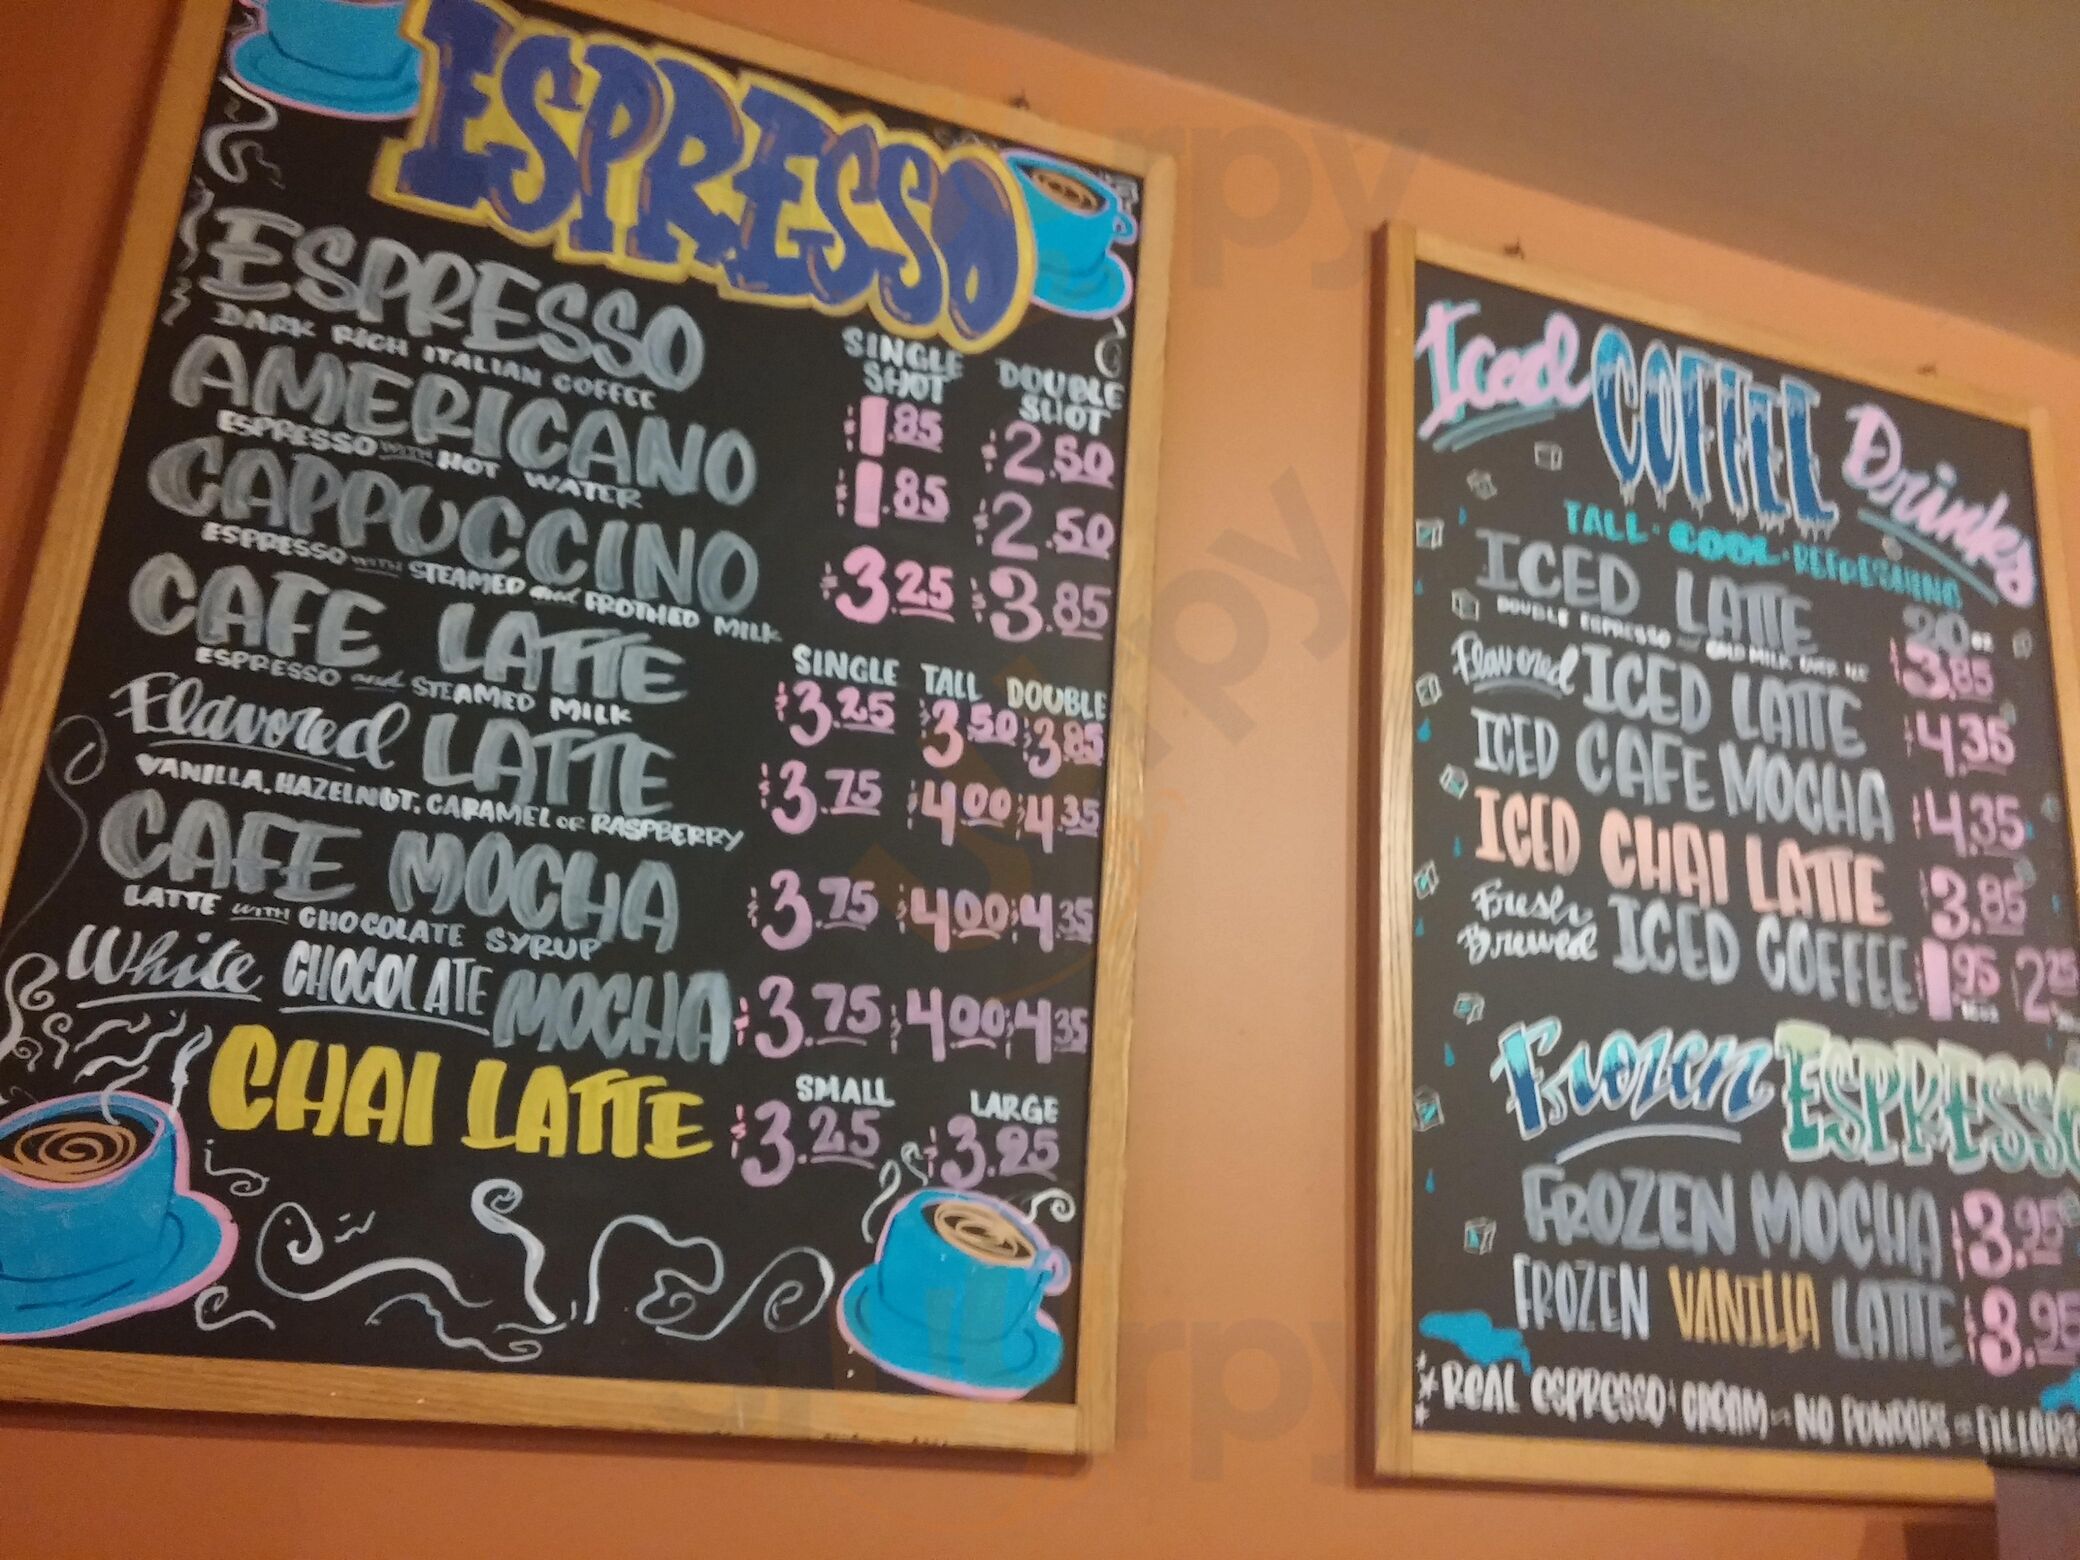 ESPRESSO
SINGLE SHOT DOUBLE SHOT
ESPRESSO $1.85 $2.50
DARK RICH ITALIAN COFFEE
AMERICANO $1.85 $2.50
ESPRESSO WITH HOT WATER
CAPPUCCINO $3.25 $3.85
ESPRESSO WITH STEAMED and FROTHED MILK
SINGLE TALL DOUBLE
CAFE LATTE $3.25 $3.50 $3.85
ESPRESSO and STEAMED MILK
Flavored LATTE $3.75 $4.00 $4.35
VANILLA, HAZELNUT, CARAMEL OR RASPBERRY
CAFE MOCHA $3.75 $4.00 $4.35
LATTE WITH CHOCOLATE SYRUP
White CHOCOLATE MOCHA $3.75 $4.00 $4.35
SMALL LARGE
CHAI LATTE $3.25 $3.95
Iced COFFEE Drinks
TALL · COOL · REFRESHING
20 oz
ICED LATTE $3.85
DOUBLE ESPRESSO COLD MILK OVER ICE
Flavored ICED LATTE $4.35
ICED CAFE MOCHA $4.35
ICED CHAI LATTE $3.85
Fresh Brewed ICED COFFEE $1.95 $2.25
Frozen ESPRESSO
FROZEN MOCHA $3.95
FROZEN VANILLA LATTE $3.95
* REAL ESPRESSO & CREAM - NO POWDERS FILLERS